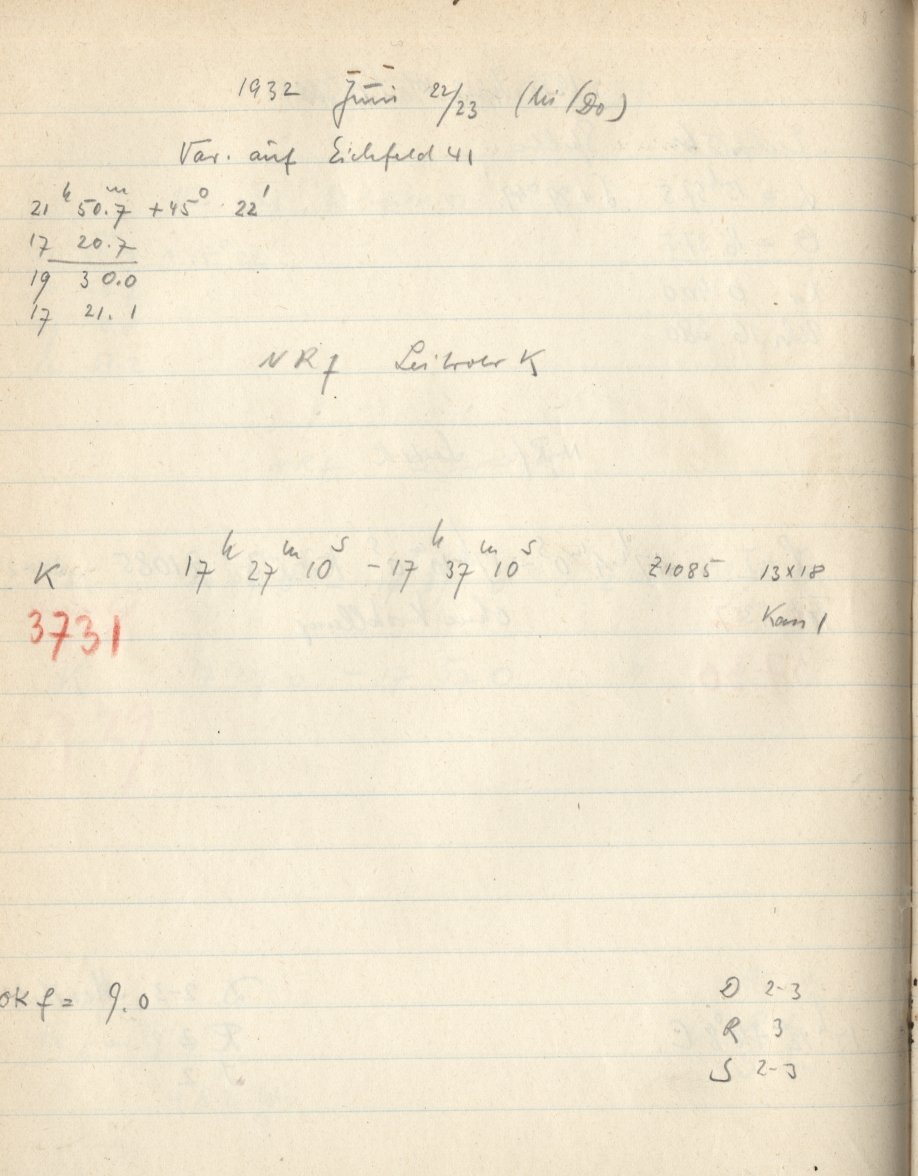 1932 Juni 22/23 (Mi/Do)
Var. auf Eichfeld 41
21ʰ 50.7ᵐ +45° 22'
17 20.7
19 30.0
17 21.1
NRf Leitrohr K
K 17ʰ 27ᵐ 10ˢ - 17ʰ 37ᵐ 10ˢ Z1085 13x18
3731 Kass 1
OKf = 9.0
D 2-3
R 3
S 2-3